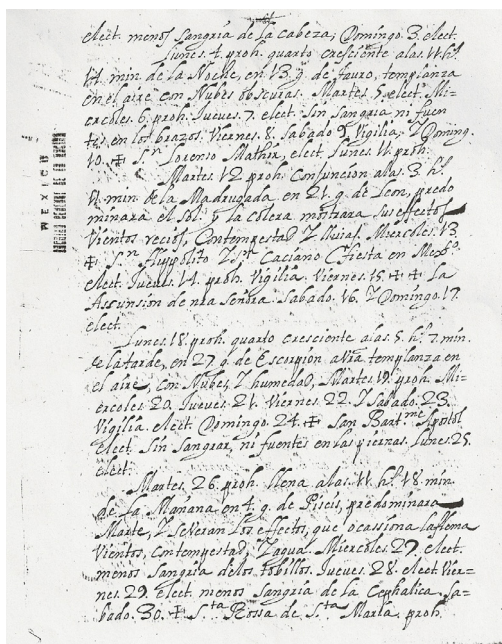 elect. menos Sangria de la Cabeza; Domingo. 3. elect.
Lunes. 4. proh. quarto cresciente alas. 11. hs.
14. min. de la Noche, en 13. g. de Tauro, templanza
en el aire con Nubes obscuras. Martes. 5. elect. Mi=
ercoles. 6. proh. Jueves. 7. elect. Sin Sangria ni fuen
tes en los brazos. Viernes. 8. Sabado 9. Vigilia, Z Doming.
10. ✠ Sn. Lorenso Mathir, elect. Lunes. 11. proh.
Martes. 12 proh. Confuncion alas. 3. hs.
11. min. de la Madrugada en 21. g. de Leon, predo
minara el Sol. y la colera mostrara sus effectos
Vientos recios, Contempestad Z lluias. Miercoles. 13
✠ Sn. Hyppolito Z Sn. Caciano fiesta en Mexco.
elect. Jueves. 14. proh. Vigilia. Viernes. 15 ✠ ✠ La
Assunsion de nra Señora. Sabado. 16. Z Domingo. 17.
elect.
MEXICO
Lunes. 18. proh. quarto cresciente alas. 5. hs. 7. min.
de la tarde, en 27. g. de Escorpion avra templanza en
el aire, con Nubes, Z humedad, Martes. 19. proh. Mi=
ercoles. 20. Jueves. 21. Viernes. 22. Z Sabado. 23.
Vigilia. elect. Domingo. 24. ✠ San Bartme. Apostol
elect. Sin Sangrar, ni fuentes en las piernas. Lunes. 25.
elect.
Martes. 26. proh. llena alas. 11. hs. 18. min.
de la Mañana en 4. g. de Piscis, predominara
Marte, Z se veran Los effectos, que ocassiona la flema
Vientos, Contempestad, Z agua. Miercoles. 27. elect.
menos Sangria delos tobillos. Jueves. 28. elect Vier=
nes. 29. elect. menos Sangria de la Cephalica, Sa=
bado. 30. ✠ Sta. Rossa de Sta. Marla, proh.